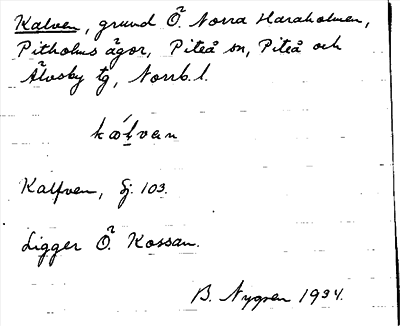 Kalven, grund Ö. Norra Haraholmen,
Pitholms ägor, Piteå sn, Piteå och
Älvsby tg, Norrb. l.
kálvan
Kalfven, Sj. 103.
Ligger Ö. Kossan.
B. Nygren 1934.